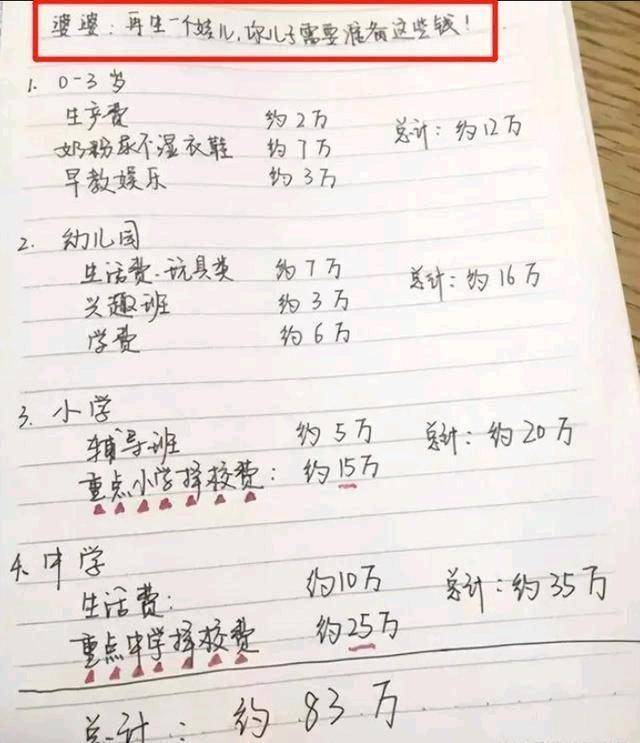 婆婆：再生一个娃儿，你儿子需要准备这些钱！
1. 0-3岁
生产费 约2万 总计：约12万
奶粉尿不湿衣鞋 约7万
早教娱乐 约3万
2. 幼儿园
生活费、玩具类 约7万 总计：约16万
兴趣班 约3万
学费 约6万
3. 小学
辅导班 约5万 总计：约20万
重点小学择校费： 约15万
4、中学
生活费： 约10万 总计：约35万
重点中学择校费 约25万
总计： 约83万